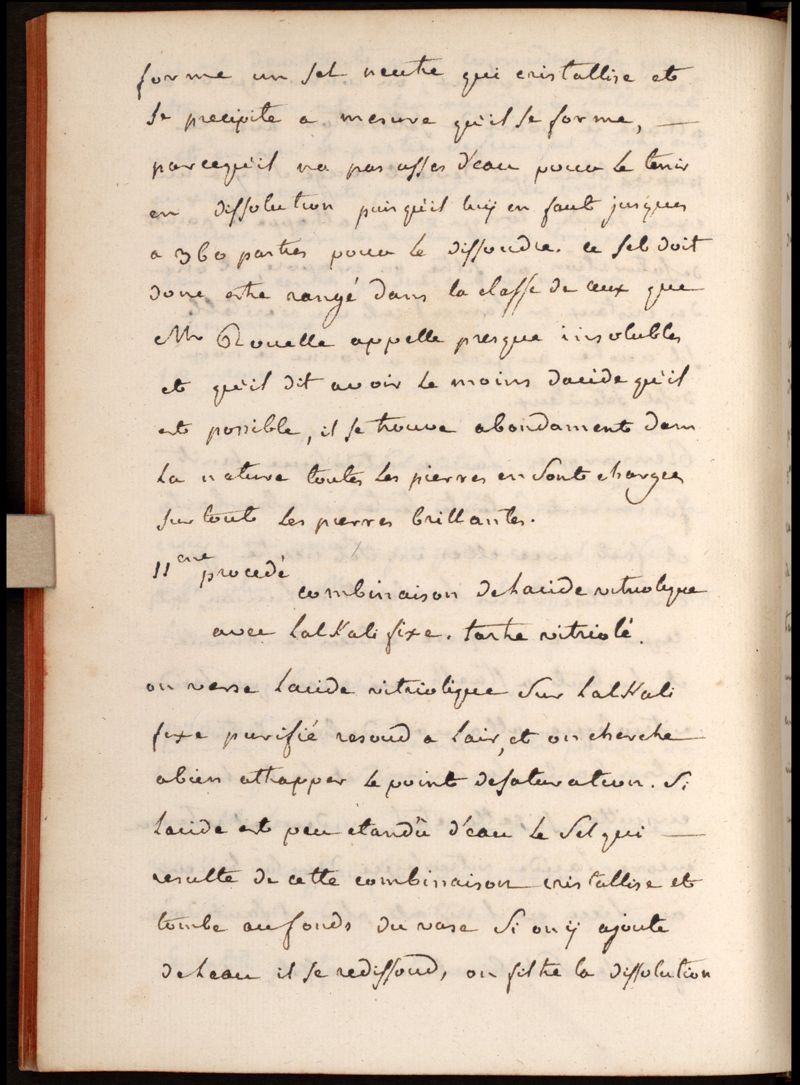 forme un sel neutre qui cristallise et
se precipite a mesure qu'il se forme, —
parcequ'il n'a pas asses d'eau pour le tenir
en dissolution puisqu'il luy en faut jusques
a 360 parties pour le dissoudre. ce sel doit
donc estre rangé dans la classe de ceux que
Mr Rouelle appelle presque insolubles
et qu'il dit avoir le moins dacide qu'il
est possible, il se trouve abondament dans
la nature toutes les pierres en sont chargees
sur tout les pierres brillantes.
11eme procedé
combinaison de lacide vitriolique
avec lalkali fixe. tartre vitriolé.
on verse lacide vitriolique sur lalkali
fixe purifié resoud a lair, et on cherche
a bien attrapper le point de saturation. Si
lacide est peu etandû d'eau le sel qui —
resulte de cette combinaison cristallise et
tombe au fonds du vase Si on ÿ ajoute
de leau il se redissoud, on filtre la dissolution